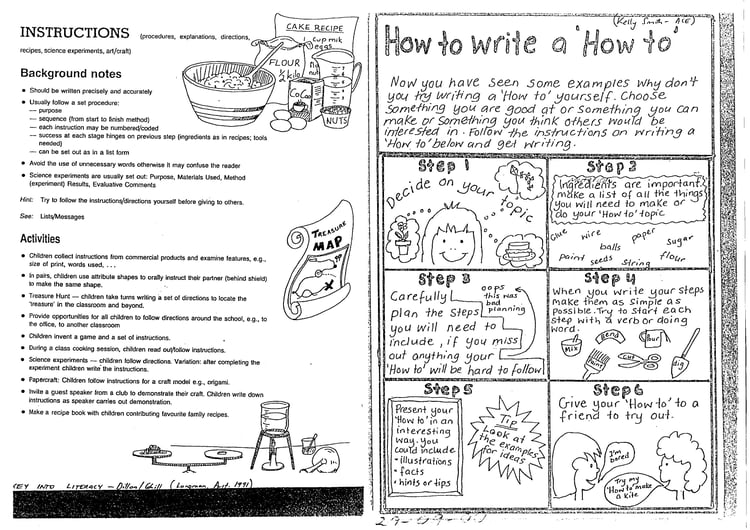 INSTRUCTIONS (procedures, explanations, directions,
recipes, science experiments, art/craft)
CAKE RECIPE
1 cup milk
eggs
FLOUR
½ kilo
COCOA
NUTS
Background notes
• Should be written precisely and accurately
• Usually follow a set procedure:
— purpose
— sequence (from start to finish method)
— each instruction may be numbered/coded
— success at each stage hinges on previous step (ingredients as in recipes; tools
needed)
— can be set out as in a list form
• Avoid the use of unnecessary words otherwise it may confuse the reader
• Science experiments are usually set out: Purpose, Materials Used, Method
(experiment) Results, Evaluative Comments
Hint: Try to follow the instructions/directions yourself before giving to others.
See: Lists/Messages
TREASURE
MAP
Activities
• Children collect instructions from commercial products and examine features, e.g.,
size of print, words used, . . .
• In pairs, children use attribute shapes to orally instruct their partner (behind shield)
to make the same shape.
• Treasure Hunt — children take turns writing a set of directions to locate the
'treasure' in the classroom and beyond.
• Provide opportunities for all children to follow directions around the school, e.g., to
the office, to another classroom
• Children invent a game and a set of instructions.
• During a class cooking session, children read out/follow instructions.
• Science experiments — children follow directions. Variation: after completing the
experiment children write the instructions.
• Papercraft: Children follow instructions for a craft model e.g., origami.
• Invite a guest speaker from a club to demonstrate their craft. Children write down
instructions as speaker carries out demonstration.
• Make a recipe book with children contributing favourite family recipes.
KEY INTO LITERACY – Dillon/Gill (Longman, Aust. 1991)
(Kelly Smith - ACE)
How to write a 'How to'
Now you have seen some examples why don't
you try writing a 'How to' yourself. Choose
something you are good at or something you can
make or something you think others would be
interested in. Follow the instructions on writing a
'How to' below and get writing.
Step 1
Decide on your topic
Step 2
Ingredients are important
make a list of all the things
you will need to make or
do your 'How to' topic
Glue wire paper sugar
balls
paint seeds string flour
Step 3
Carefully
plan the steps
you will need to
include, if you miss
out anything your
'How to' will be hard to follow
oops
this was
bad
planning
Step 4
When you write your steps
make them as simple as
possible. Try to start each
step with a verb or doing
word.
Mix
Bend
Pour
paint
cut
dig
Step 5
Present your
'How to' in an
interesting
way. You
could include
• illustrations
• facts
• hints or tips
Tip
Look at
the examples
for ideas
Step 6
Give your 'How to' to a
friend to try out.
I'm
bored
Try my
'How to make
a kite